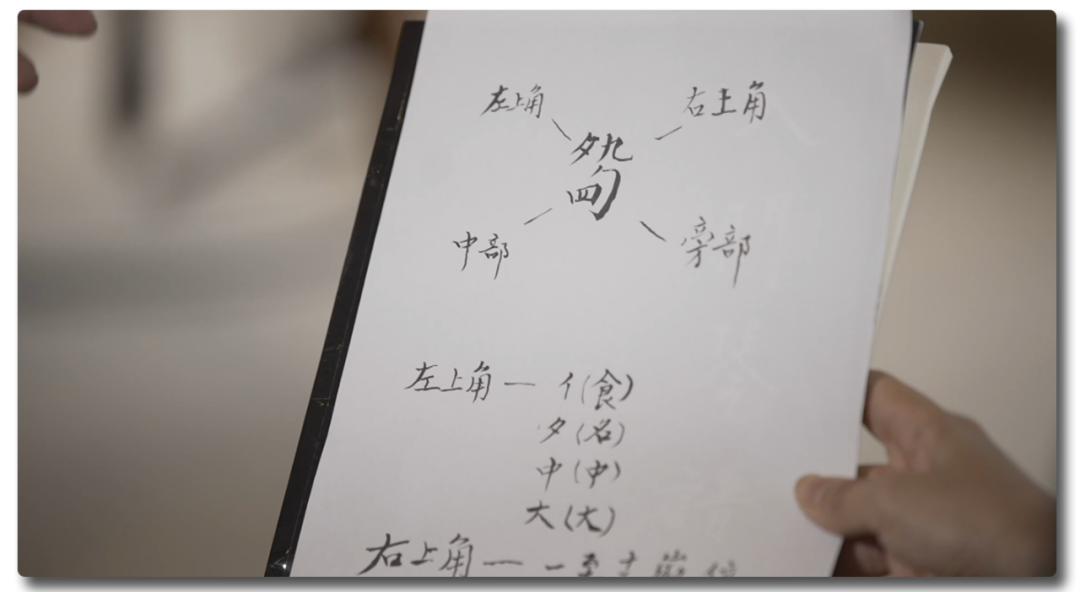 左上角 右上角
夕九
四勹
中部 旁部
左上角 — 亻(食)
夕(名)
中(中)
大(大)
右上角 — 一至